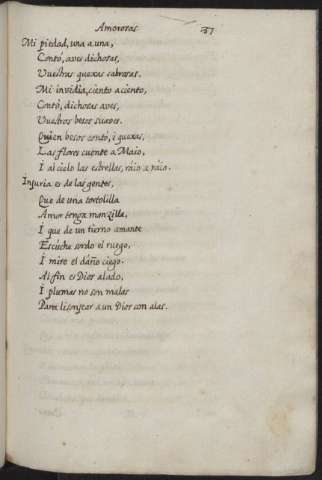 Amorosas 57
Mi piedad, una a una,
Contó, aves dichosas,
Vuestras quexas sabrosas.
Mi invidia, ciento a ciento,
Contó, dichosas aves,
Vuestros besos suaves.
Quien besos contó, i quexas,
Las flores cuente a Maio,
I al cielo las estrellas, raio a raio.
Injuria es de las gentes,
Que de una tortolilla
Amor tenga manzilla,
I que de un tierno amante
Escuche sordo el ruego,
I mire el daño ciego.
Al fin es Dios alado,
I plumas no son malas
Para lisonjear a un Dios con alas.